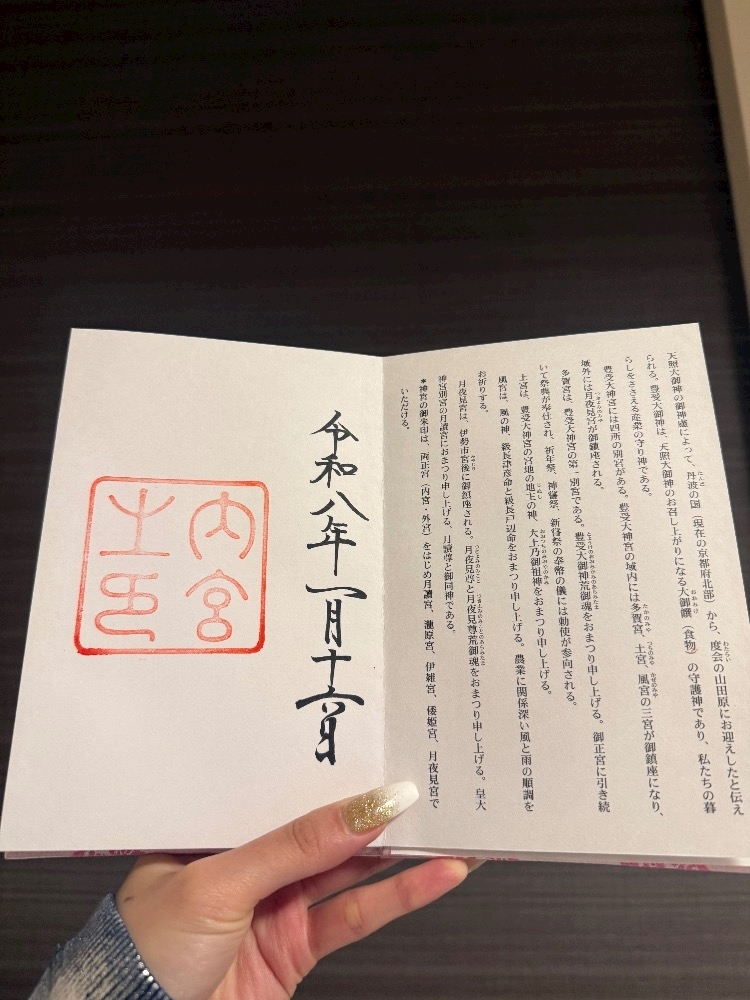 天照大御神の御神慮によって、丹波の国（現在の京都府北部）から、度会の山田原にお迎えしたと伝え
られる。豊受大御神は、天照大御神のお召し上がりになる大御饌（食物）の守護神であり、私たちの暮
らしをささえる産業の守り神である。
豊受大神宮には四所の別宮がある。豊受大神宮の域内には多賀宮、土宮、風宮の三宮が御鎮座になり、
域外には月夜見宮が御鎮座される。
多賀宮は、豊受大神宮の第一別宮である。豊受大御神荒御魂をおまつり申し上げる。御正宮に引き続
いて祭典が奉仕され、祈年祭、神嘗祭、新嘗祭の奉幣の儀には勅使が参向される。
土宮は、豊受大神宮の宮地の地主の神、大土乃御祖神をおまつり申し上げる。
風宮は、風の神、級長津彦命と級長戸辺命をおまつり申し上げる。農業に関係深い風と雨の順調を
お祈りする。
月夜見宮は、伊勢市宮後に御鎮座される。月夜見尊と月夜見尊荒御魂をおまつり申し上げる。皇大
神宮別宮の月讀宮におまつり申し上げる、月讀尊と御同神である。
＊神宮の御朱印は、両正宮（内宮・外宮）をはじめ月讀宮、瀧原宮、伊雑宮、倭姫宮、月夜見宮で
いただける。
令和八年一月十六日
内宮
之印